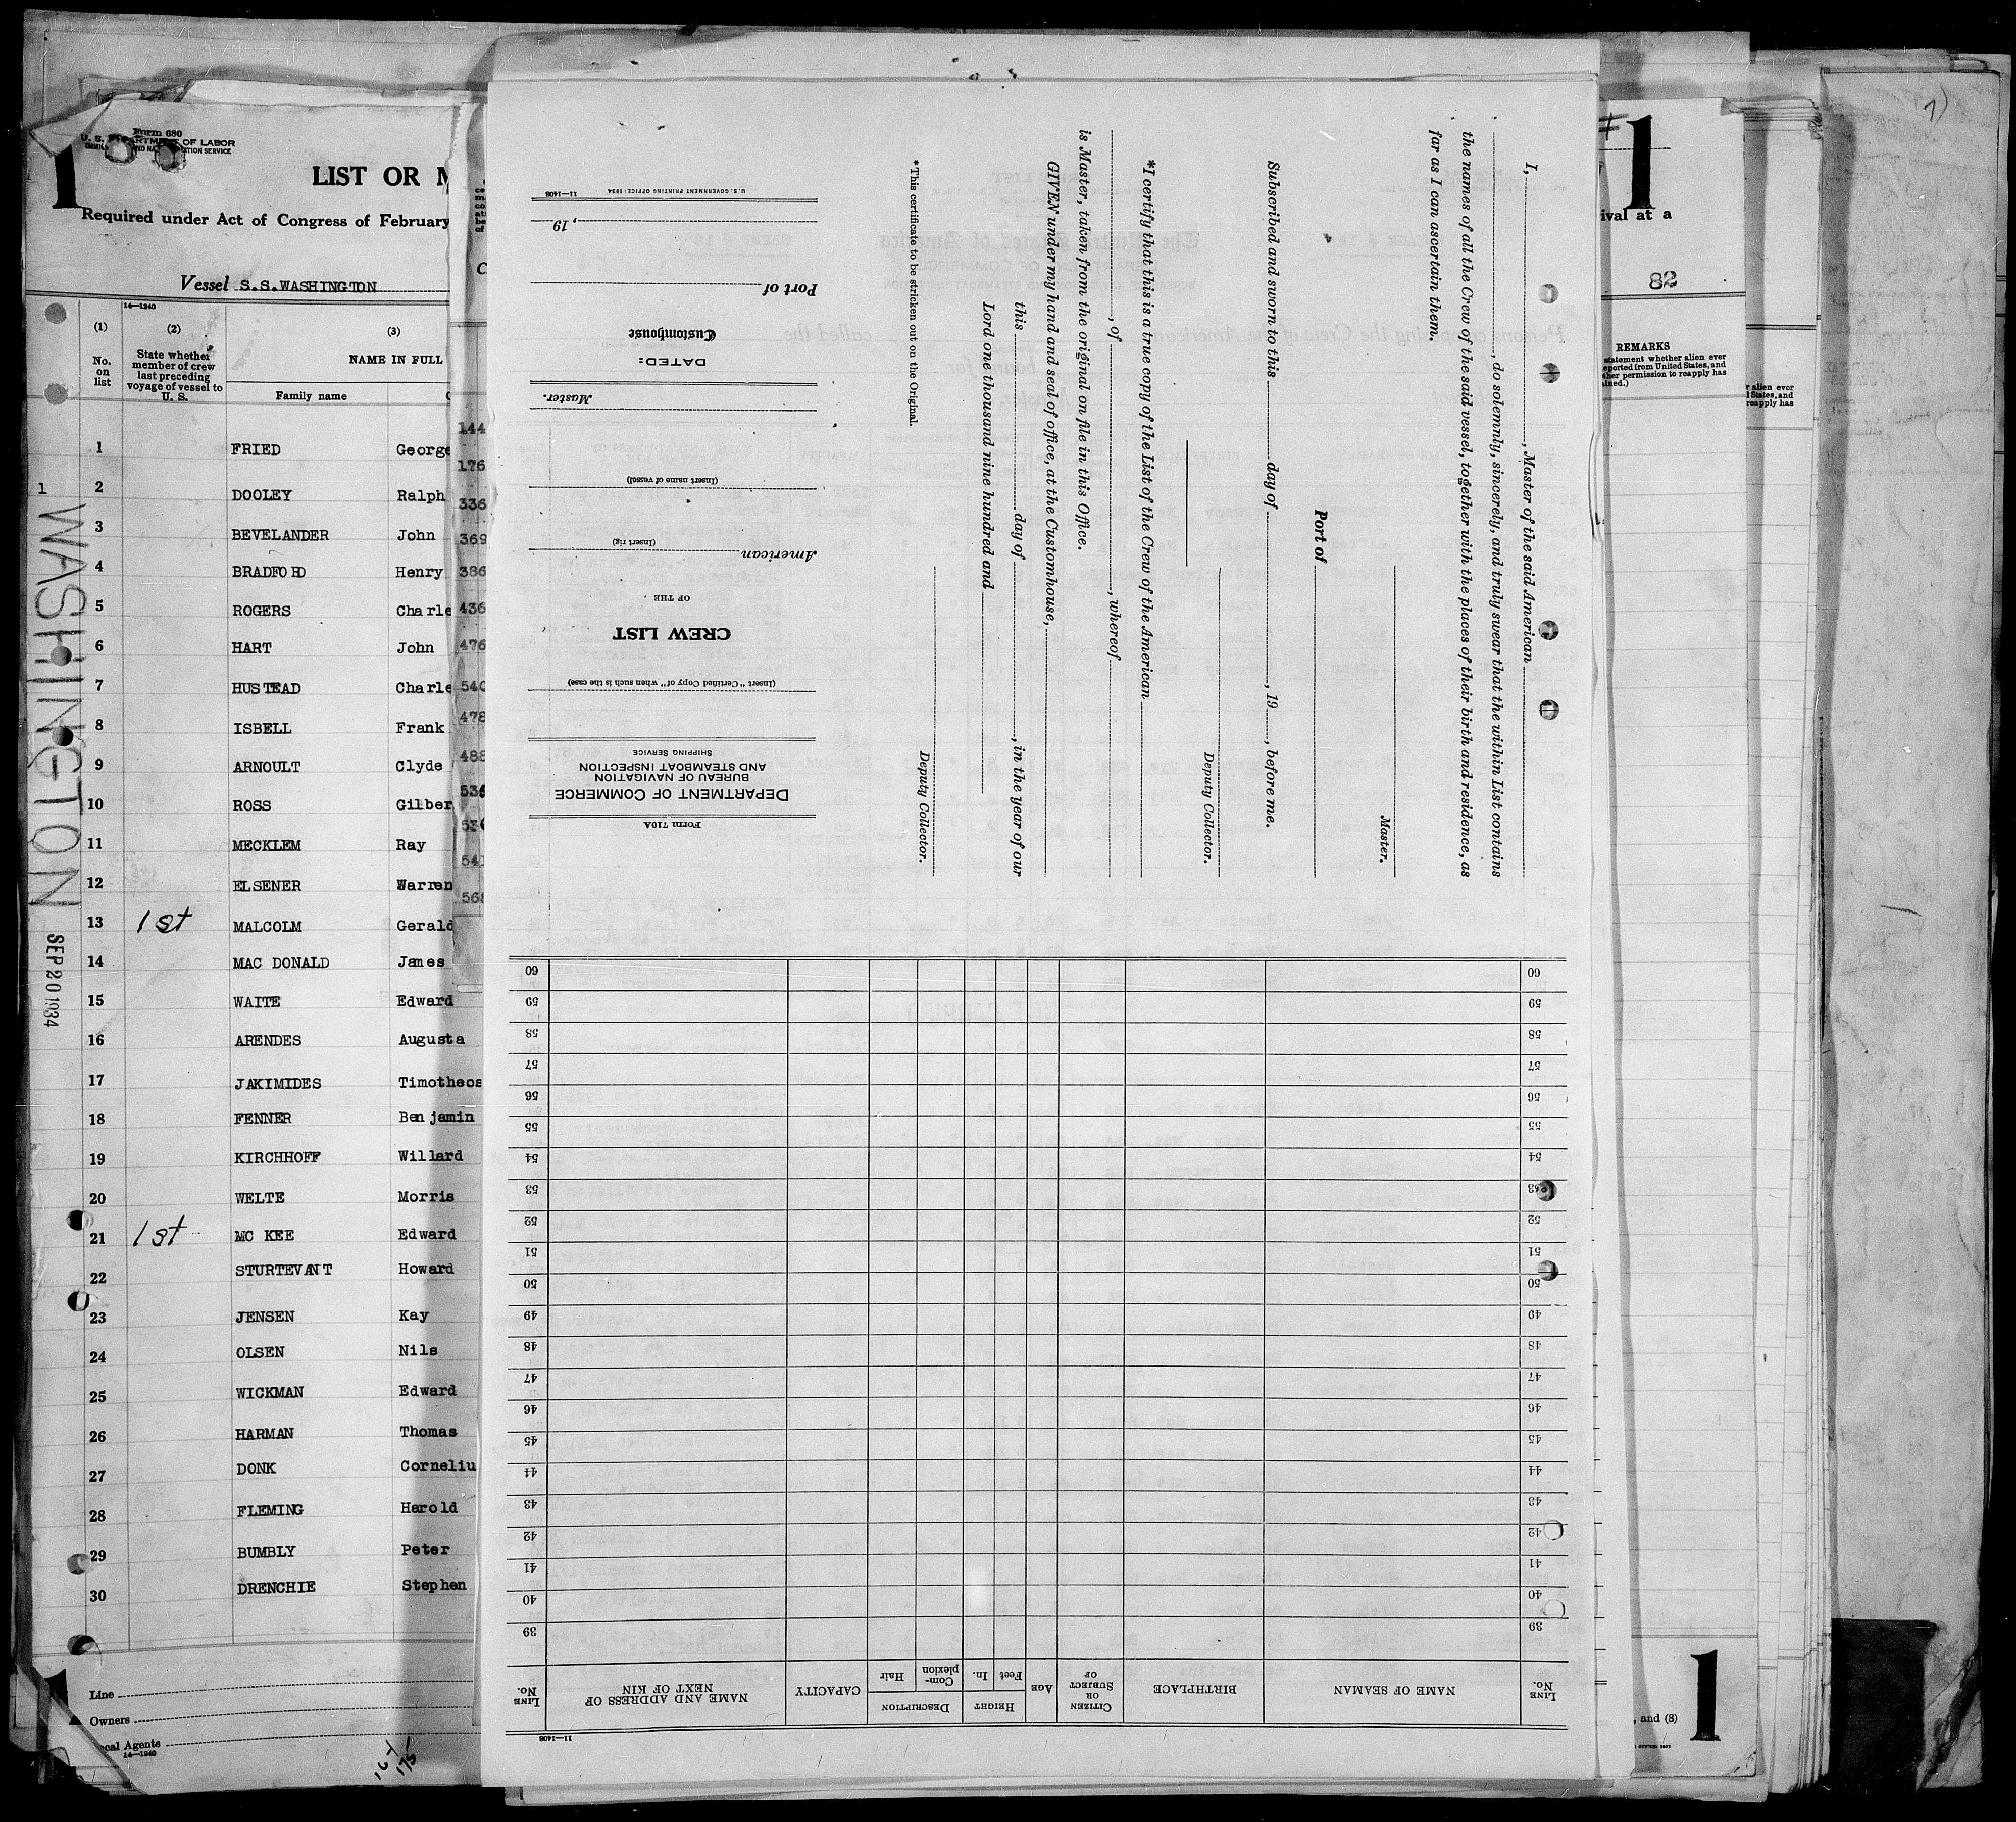 1
Form 680
U. S. DEPARTMENT OF LABOR
LIST OR
Required under Act of Congress of February
Vessel S.S.WASHINGTON
14—1240
(1) (2) (3)
No. on list
State whether member of crew last preceding voyage of vessel to U. S.
NAME IN FULL
Family name
1 FRIED George
1
2 DOOLEY Ralph
3 BEVELANDER John
4 BRADFORD Henry
5 ROGERS Charle
6 HART John
7 HUSTEAD Charle
8 ISBELL Frank
9 ARNOULT Clyde
10 ROSS Gilber
11 MECKLEM Ray
12 ELSENER Warren
13 1st MALCOLM Gerald
14 MAC DONALD James
15 WAITE Edward
16 ARENDES Augusta
17 JAKIMIDES Timotheos
18 FENNER Benjamin
19 KIRCHHOFF Willard
20 WELTE Morris
21 1st MC KEE Edward
22 STURTEVANT Howard
23 JENSEN Kay
24 OLSEN Nils
25 WICKMAN Edward
26 HARMAN Thomas
27 DONK Corneliu
28 FLEMING Harold
29 BUMBLY Peter
30 DRENCHIE Stephen
WASHINGTON
SEP 20 1934
Line
Owners
Local Agents
14—1240
144
176
336
369
386
436
476
540
478
488
536
536
541
568
I, , Master of the said American
, do solemnly, sincerely, and truly swear that the within List contains
the names of all the Crew of the said vessel, together with the places of their birth and residence, as
far as I can ascertain them.
Master.
Port of
Subscribed and sworn to this day of , 19 , before me.
Deputy Collector.
*I certify that this is a true copy of the List of the Crew of the American
, of , whereof
is Master, taken from the original on file in this Office.
GIVEN under my hand and seal of office, at the Customhouse,
this day of , in the year of our
Lord one thousand nine hundred and
Deputy Collector.
*This certificate to be stricken out on the Original.
Form 710A
DEPARTMENT OF COMMERCE
BUREAU OF NAVIGATION
AND STEAMBOAT INSPECTION
SHIPPING SERVICE
(Insert "Certified Copy of" when such is the case)
CREW LIST
OF THE
American
(Insert rig)
(Insert name of vessel)
Master.
DATED:
Customhouse
Port of
, 19
U.S. GOVERNMENT PRINTING OFFICE: 1934 11—1408
11—1408
LINE No.
NAME OF SEAMAN
BIRTHPLACE
CITIZEN OR SUBJECT OF
AGE
HEIGHT
Feet In.
DESCRIPTION
Complexion Hair
CAPACITY
NAME AND ADDRESS OF NEXT OF KIN
LINE No.
39 39
40 40
41 41
42 42
43 43
44 44
45 45
46 46
47 47
48 48
49 49
50 50
51 51
52 52
53 53
54 54
55 55
56 56
57 57
58 58
59 59
60 60
1
ival at a
82
REMARKS
statement whether alien ever
eported from United States, and
ther permission to reapply has
ined.)
r alien ever
l States, and
reapply has
, and (8)
1